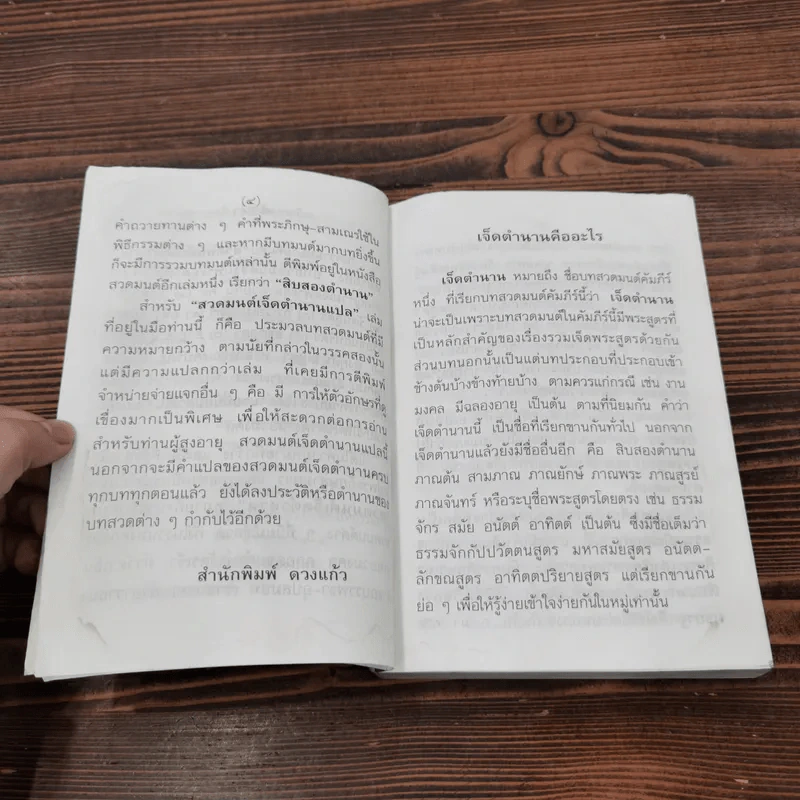 (๔)
คำถวายทานต่าง ๆ คำที่พระภิกษุ-สามเณรใช้ใน
พิธีกรรมต่าง ๆ และหากมีบทมนต์มากบทยิ่งขึ้น
ก็จะมีการรวมบทมนต์เหล่านั้น ตีพิมพ์อยู่ในหนังสือ
สวดมนต์อีกเล่มหนึ่ง เรียกว่า “สิบสองตำนาน”
สำหรับ “สวดมนต์เจ็ดตำนานแปล” เล่ม
ที่อยู่ในมือท่านนี้ ก็คือ ประมวลบทสวดมนต์ที่มี
ความหมายกว้าง ตามนัยที่กล่าวในวรรคสองนั้น
แต่มีความแปลกกว่าเล่ม ที่เคยมีการตีพิมพ์
จำหน่ายจ่ายแจกอื่น ๆ คือ มี การให้ตัวอักษรที่ดู
เขื่องมากเป็นพิเศษ เพื่อให้สะดวกต่อการอ่าน
สำหรับท่านผู้สูงอายุ สวดมนต์เจ็ดตำนานแปลนี้
นอกจากจะมีคำแปลของสวดมนต์เจ็ดตำนานครบ
ทุกบททุกตอนแล้ว ยังได้ลงประวัติหรือตำนานของ
บทสวดต่าง ๆ กำกับไว้อีกด้วย
สำนักพิมพ์ ดวงแก้ว
เจ็ดตำนานคืออะไร
เจ็ดตำนาน หมายถึง ชื่อบทสวดมนต์คัมภีร์
หนึ่ง ที่เรียกบทสวดมนต์คัมภีร์นี้ว่า เจ็ดตำนาน
น่าจะเป็นเพราะบทสวดมนต์ในคัมภีร์นี้มีพระสูตรที่
เป็นหลักสำคัญของเรื่องรวมเจ็ดพระสูตรด้วยกัน
ส่วนบทนอกนั้นเป็นแต่บทประกอบที่ประกอบเข้า
ข้างต้นบ้างข้างท้ายบ้าง ตามควรแก่กรณี เช่น งาน
มงคล มีฉลองอายุ เป็นต้น ตามที่นิยมกัน คำว่า
เจ็ดตำนานนี้ เป็นชื่อที่เรียกขานกันทั่วไป นอกจาก
เจ็ดตำนานแล้วยังมีชื่ออื่นอีก คือ สิบสองตำนาน
ภาณต้น สามภาณ ภาณยักษ์ ภาณพระ ภาณสูรย์
ภาณจันทร์ หรือระบุชื่อพระสูตรโดยตรง เช่น ธรรม
จักร สมัย อนัตต์ อาทิตต์ เป็นต้น ซึ่งมีชื่อเต็มว่า
ธรรมจักกัปปวัตตนสูตร มหาสมัยสูตร อนัตต-
ลักขณสูตร อาทิตตปริยายสูตร แต่เรียกขานกัน
ย่อ ๆ เพื่อให้รู้ง่ายเข้าใจง่ายกันในหมู่เท่านั้น